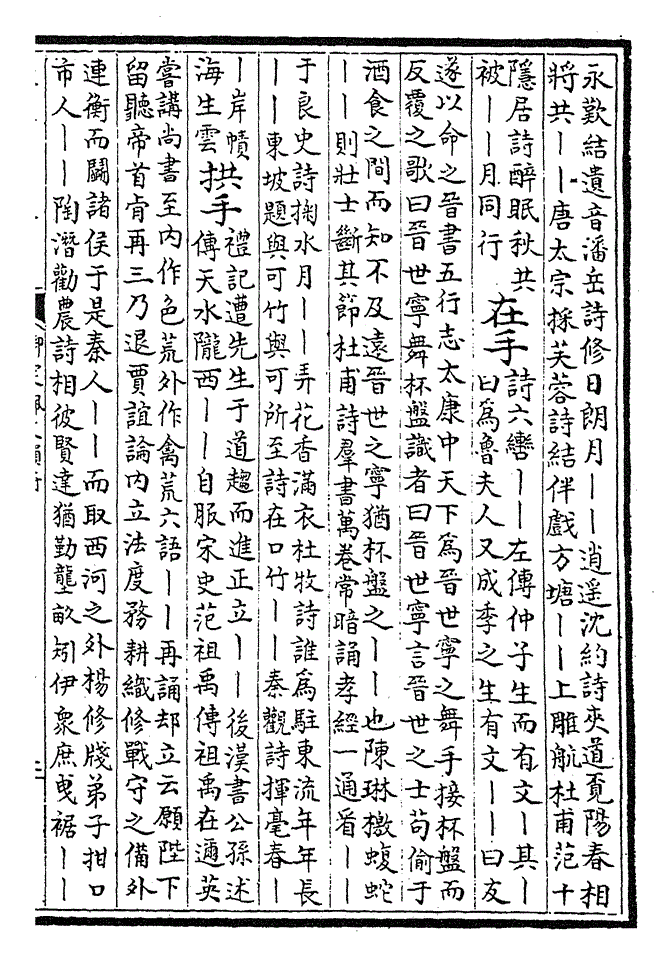 永歎結遺音潘岳詩修日朗月丨丨逍遥沈約詩夾道覓陽春相
將共丨丨唐太宗採芙蓉詩結伴戲方塘丨丨上雕航杜甫范十
隱居詩醉眠秋共
被丨丨月同行
在手
詩六轡丨丨左傳仲子生而有文丨其丨
曰為魯夫人又成季之生有文丨丨曰友
遂以命之晉書五行志太康中天下為晉世寧之舞手接杯盤而
反覆之歌曰晉世寧舞杯盤識者曰晉世寧言晉世之士苟偷于
酒食之間而知不及遠晉世之寧猶杯盤之丨丨也陳琳檄蝮蛇
丨丨則壯士斷其節杜甫詩羣書萬卷常暗誦孝經一通看丨丨
于良史詩掬水月丨丨弄花香滿衣杜牧詩誰為駐東流年年長
丨丨東坡題與可竹與可所至詩在口竹丨丨秦觀詩揮毫春丨
丨岸幘
海生雲
拱手
禮記遭先生于道趨而進正立丨丨後漢書公孫述
傳天水隴西丨丨自服宋史范祖禹傳祖禹在邇英
嘗講尚書至内作色荒外作禽荒六語丨丨再誦却立云願陛下
留聽帝首肯再三乃退賈誼論内立法度務耕織修戰守之備外
連衡而鬭諸侯于是秦人丨丨而取西河之外楊修牋弟子拑口
市人丨丨陶潛勸農詩相彼賢達猶勤壟畝矧伊衆庶曵裾丨丨